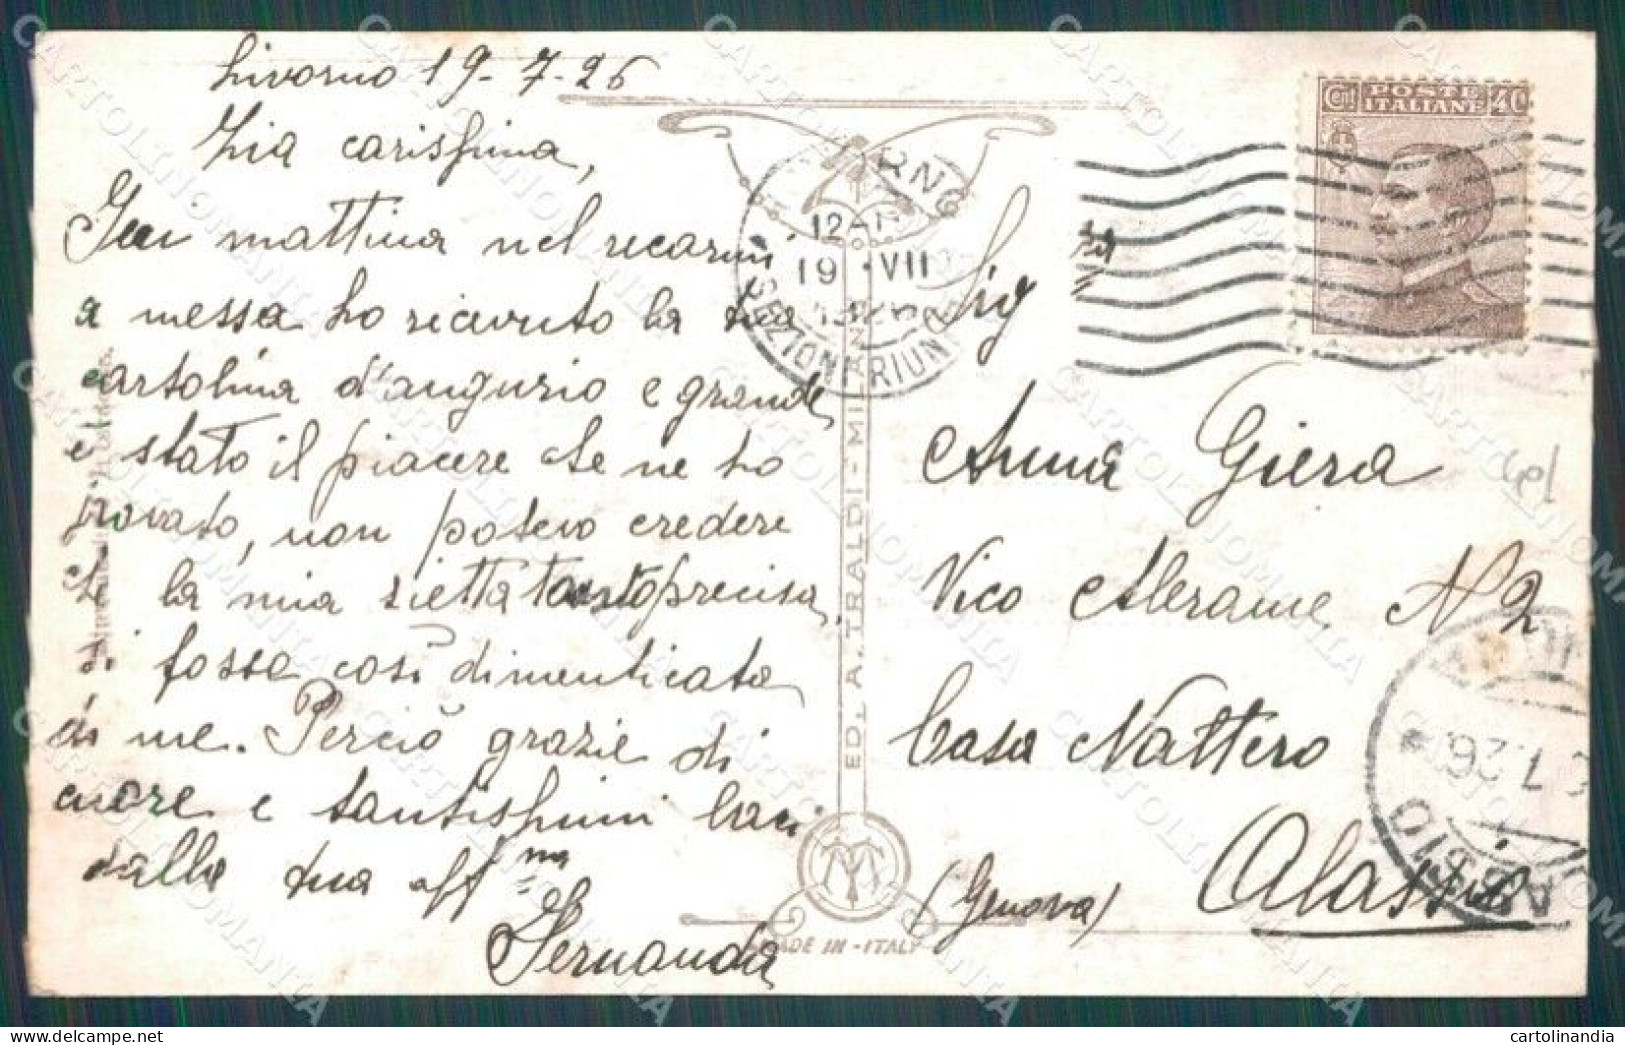 Livorno 19-7-26
Zia carissima,
Ieri mattina nel recarmi
a messa ho ricevuto la tua
cartolina d'augurio e grande
è stato il piacere che ne ho
provato, non potevo credere
che la mia zietta tanto precisa
si fosse così dimenticata
di me. Perciò grazie di
cuore e tantissimi baci
dalla tua aff.ma
Fernanda
ED. A. TRALDI - MILANO
MADE IN - ITALY
POSTE ITALIANE
Ct 40
12-
19 · VII
1926
SEZIONI RIUNITE
Sig.ra
Anna Giera
Vico Alerame N 2
Casa Nattero
Alassio
(Genova)
7.26
ALASSIO
CARTOLINOMANIA
cartolinandia